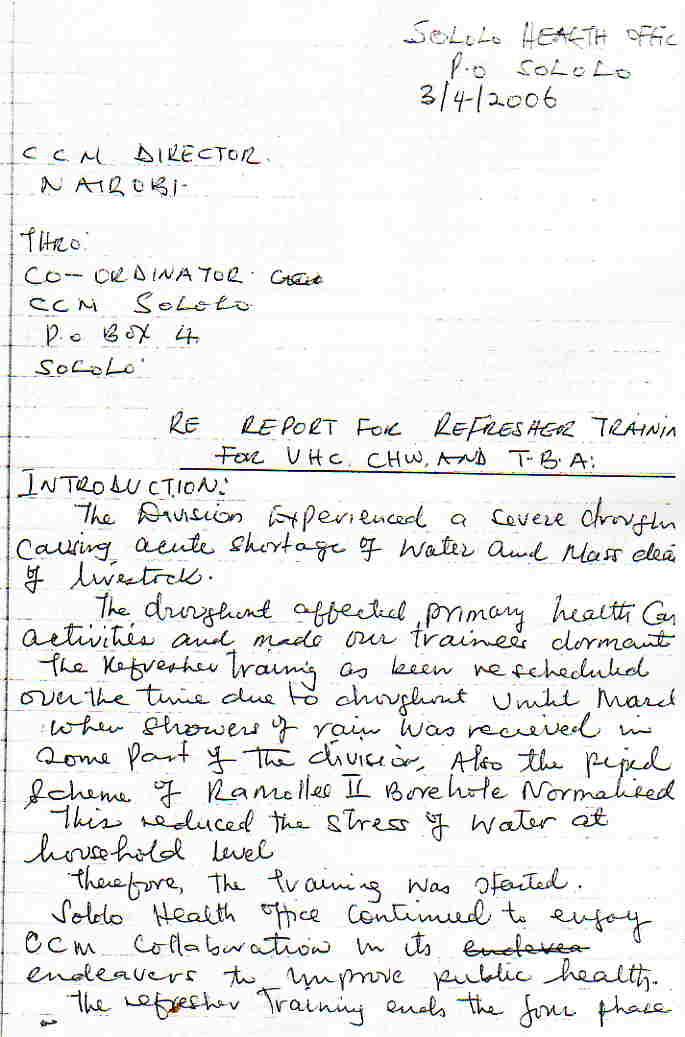 SOLOLO HEALTH OFFIC
P.O SOLOLO
3/4/2006
C C M DIRECTOR.
NAIROBI.
THRO:
CO-ORDINATOR.
CCM SOLOLO
P.O BOX 4
SOLOLO.
RE REPORT FOR REFRESHER TRAININ
FOR VHC, CHW, AND T.B.A:
INTRODUCTION:
The Division Experienced a severe droughn
Causing acute shortage of water and Mass dea
of livestock.
The droughnt affected primary health Car
activities and made our trainees dormant
The Refresher Training as been rescheduled
over the time due to droughnt Until March
when showers of rain was recieved in
Some Part of the division, Also the piped
Scheme of Ramollee II Borehole Normalised
This reduced the stress of water at
household level
Therefore, the training was started.
Soldo Health office continued to enjoy
CCM Collaboration in its endevea
endeavers to improve public health.
The refresher Training ends the four phase